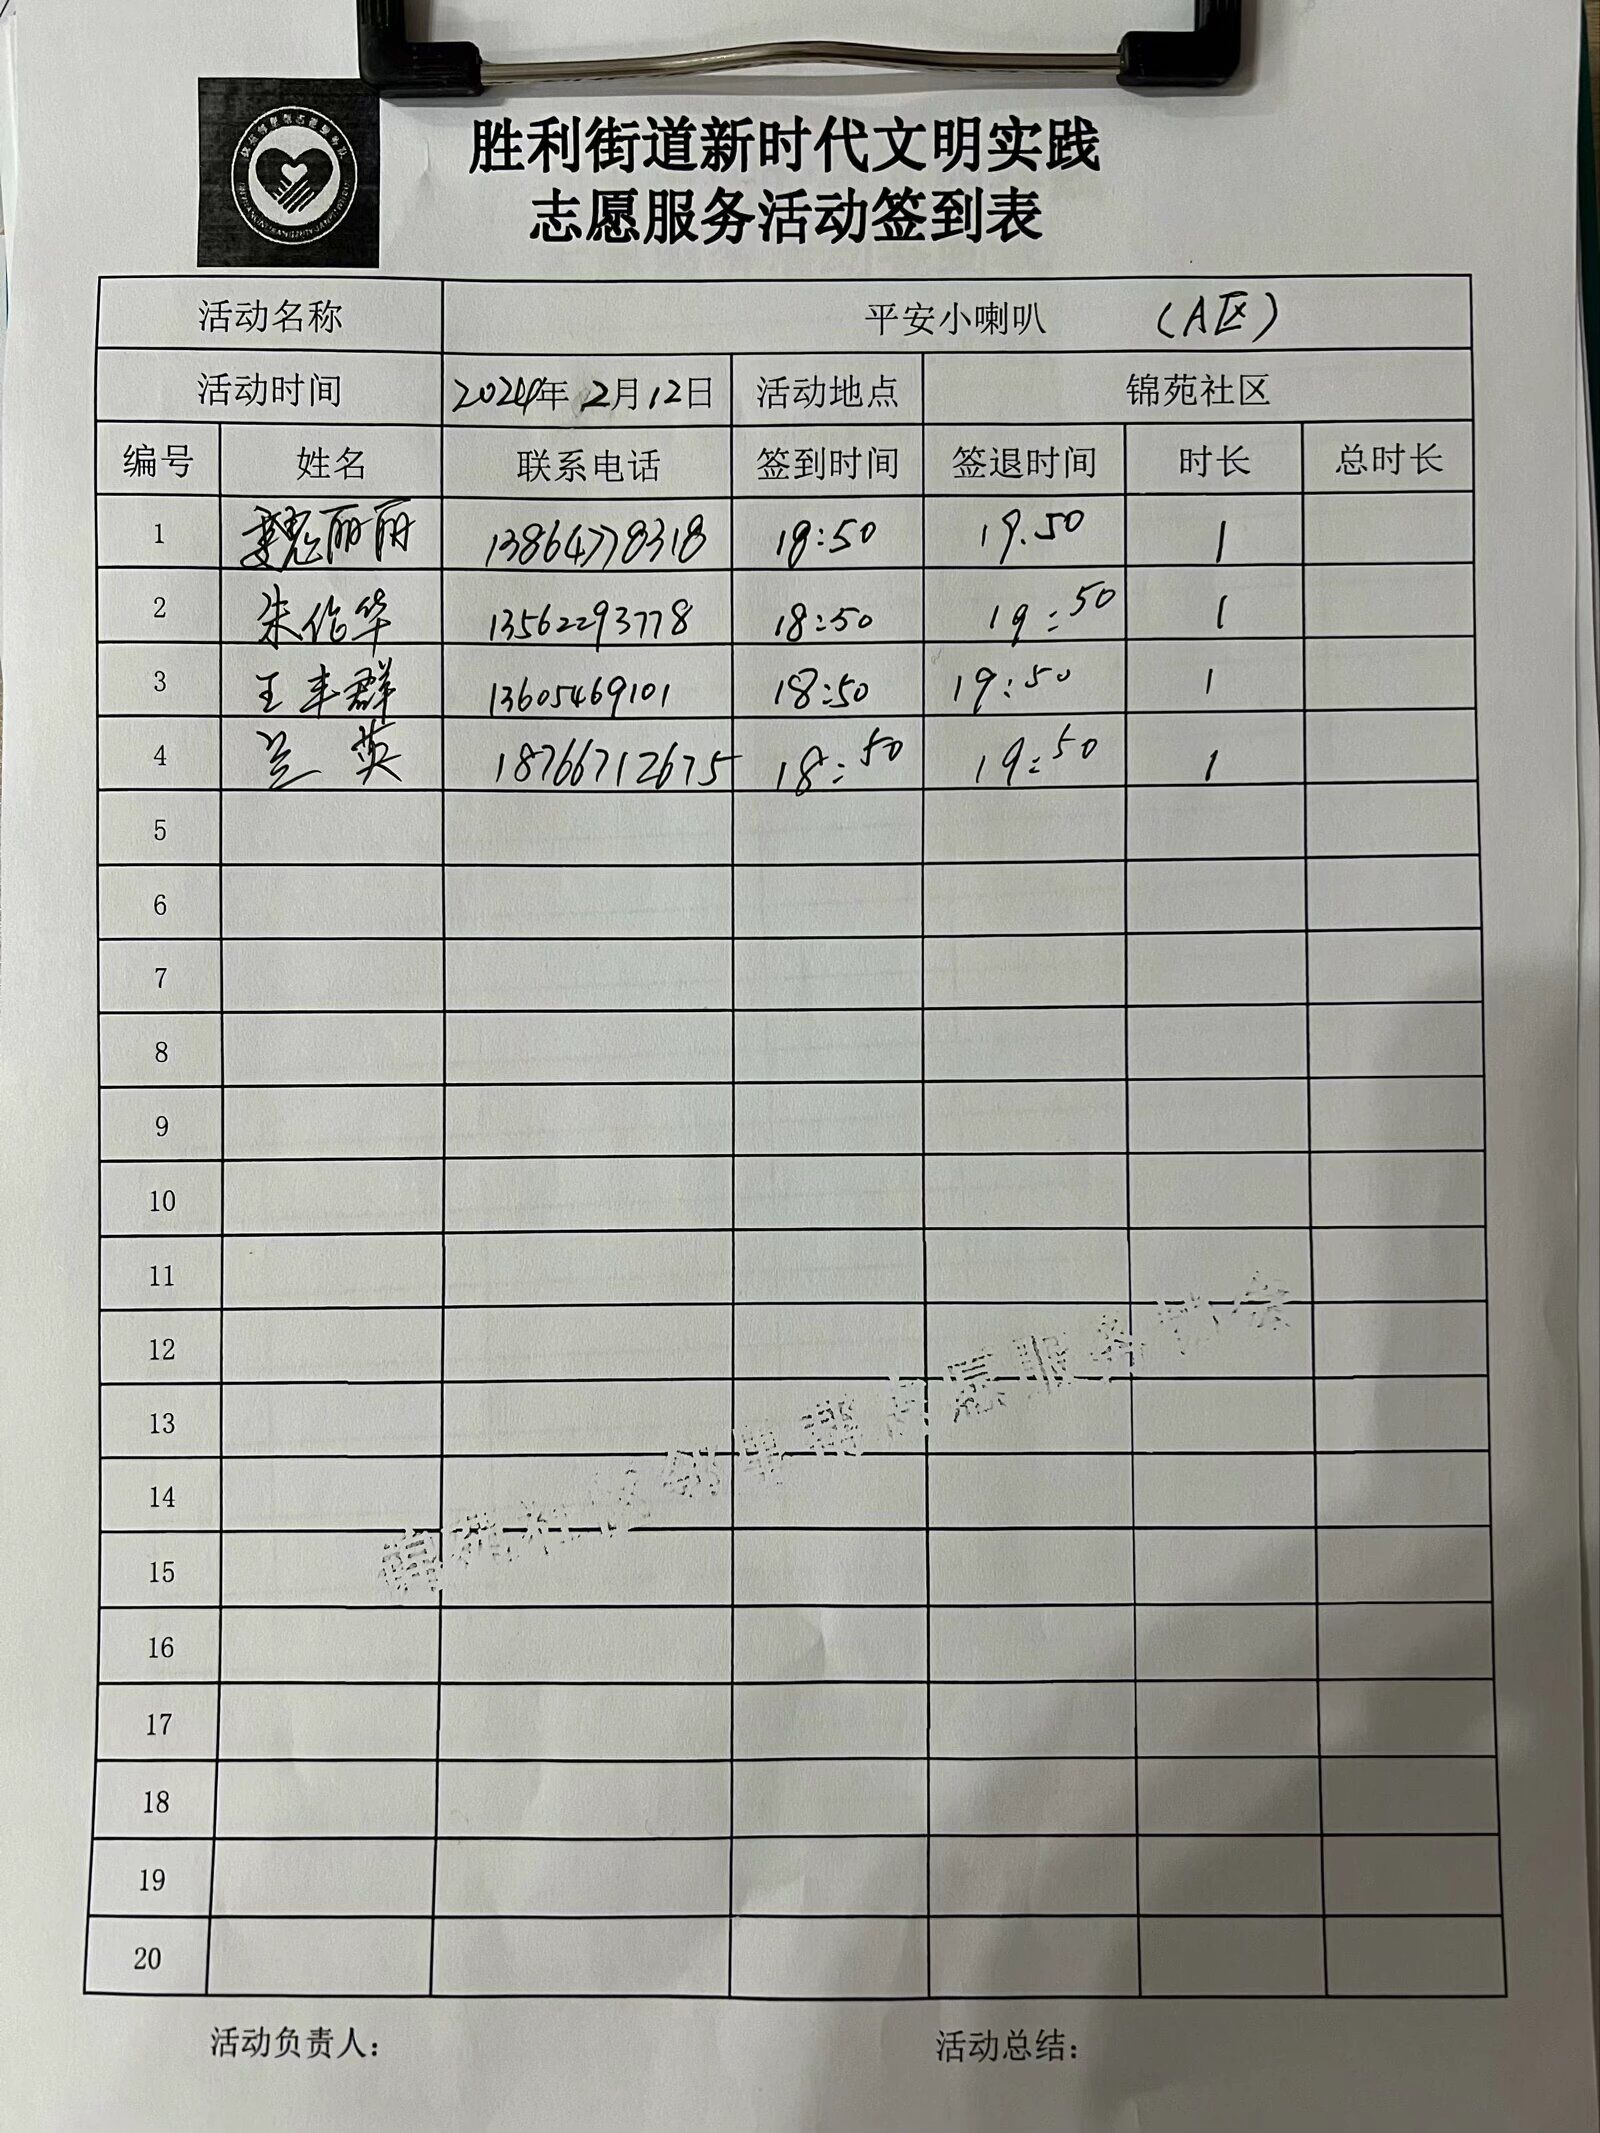 胜利街道新时代文明实践
志愿服务活动签到表
活动名称 平安小喇叭 (A区)
活动时间 2024年 2月12日 活动地点 锦苑社区
编号 姓名 联系电话 签到时间 签退时间 时长 总时长
1 魏丽丽 13864778318 18:50 19.50 1
2 朱伦华 13562293778 18:50 19:50 1
3 王丰群 13605469101 18:50 19:50 1
4 兰英 18766712675 18:50 19:50 1
5
6
7
8
9
10
11
12
13
14
15
16
17
18
19
20
邻里帮志愿服务协会
活动负责人: 活动总结: